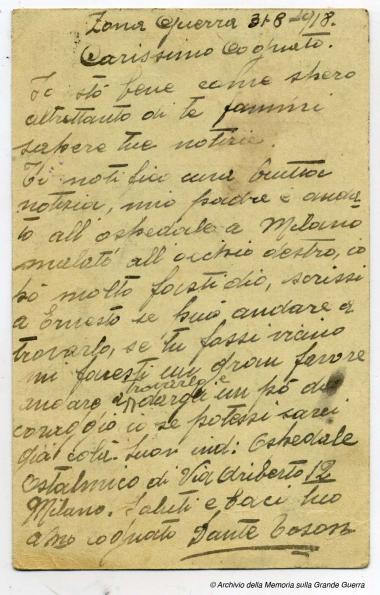 Zona Guerra 31-8-1918.
Carissimo Cognato.
Io stò bene come spero
altrettanto di te fammi
sapere tue notizie.
Ti notifico una brutta
notizia, mio padre è anda
to all'ospedale a Milano
malato all'occhio destro, io
hò molto fastidio, scrissi
a Ernesto se può andare a
trovarlo, se tu fossi vicino
mi faresti un gran favore
andare a trovarlo e dargli un pò di
coraggio io se potessi sarei
già colà. Suoi ind: Ospedale
Ostalmico di Via 12
Milano. Saluti e baci tuo
cognato Dante Coson
© Archivio della Memoria sulla Grande Guerra